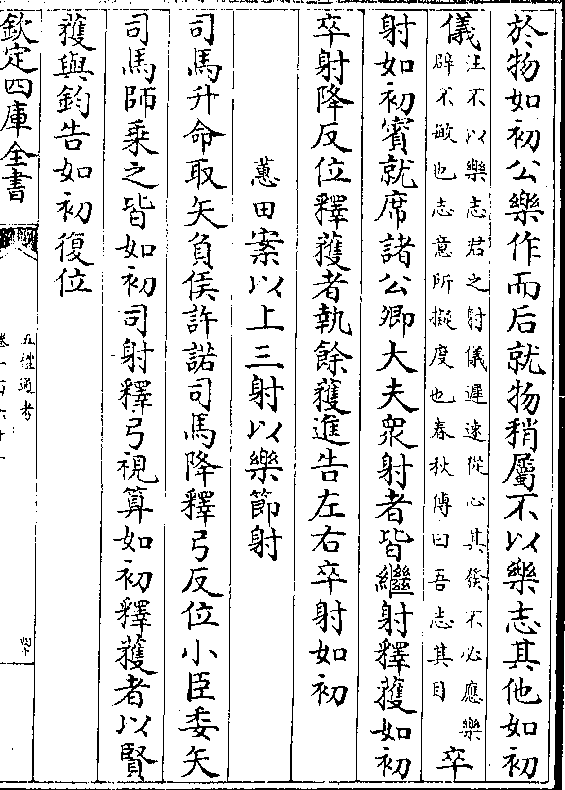 於物如初公樂作而后就物稍屬不以樂志其他如初
儀注不以樂志君之射儀遲速從心其發不必應樂
辟不敏也志意所擬度也春秋傳曰吾志其目卒
射如初賓就席諸公卿大夫衆射者皆繼射釋獲如初
卒射降反位釋獲者執餘獲進告左右卒射如初
蕙田案以上三射以樂節射
司馬升命取矢負侯許諾司馬降釋弓反位小臣委矢
司馬師乘之皆如初司射釋弓視算如初釋獲者以賢
獲與鈞告如初復位
欽定四庫全書
五禮通考